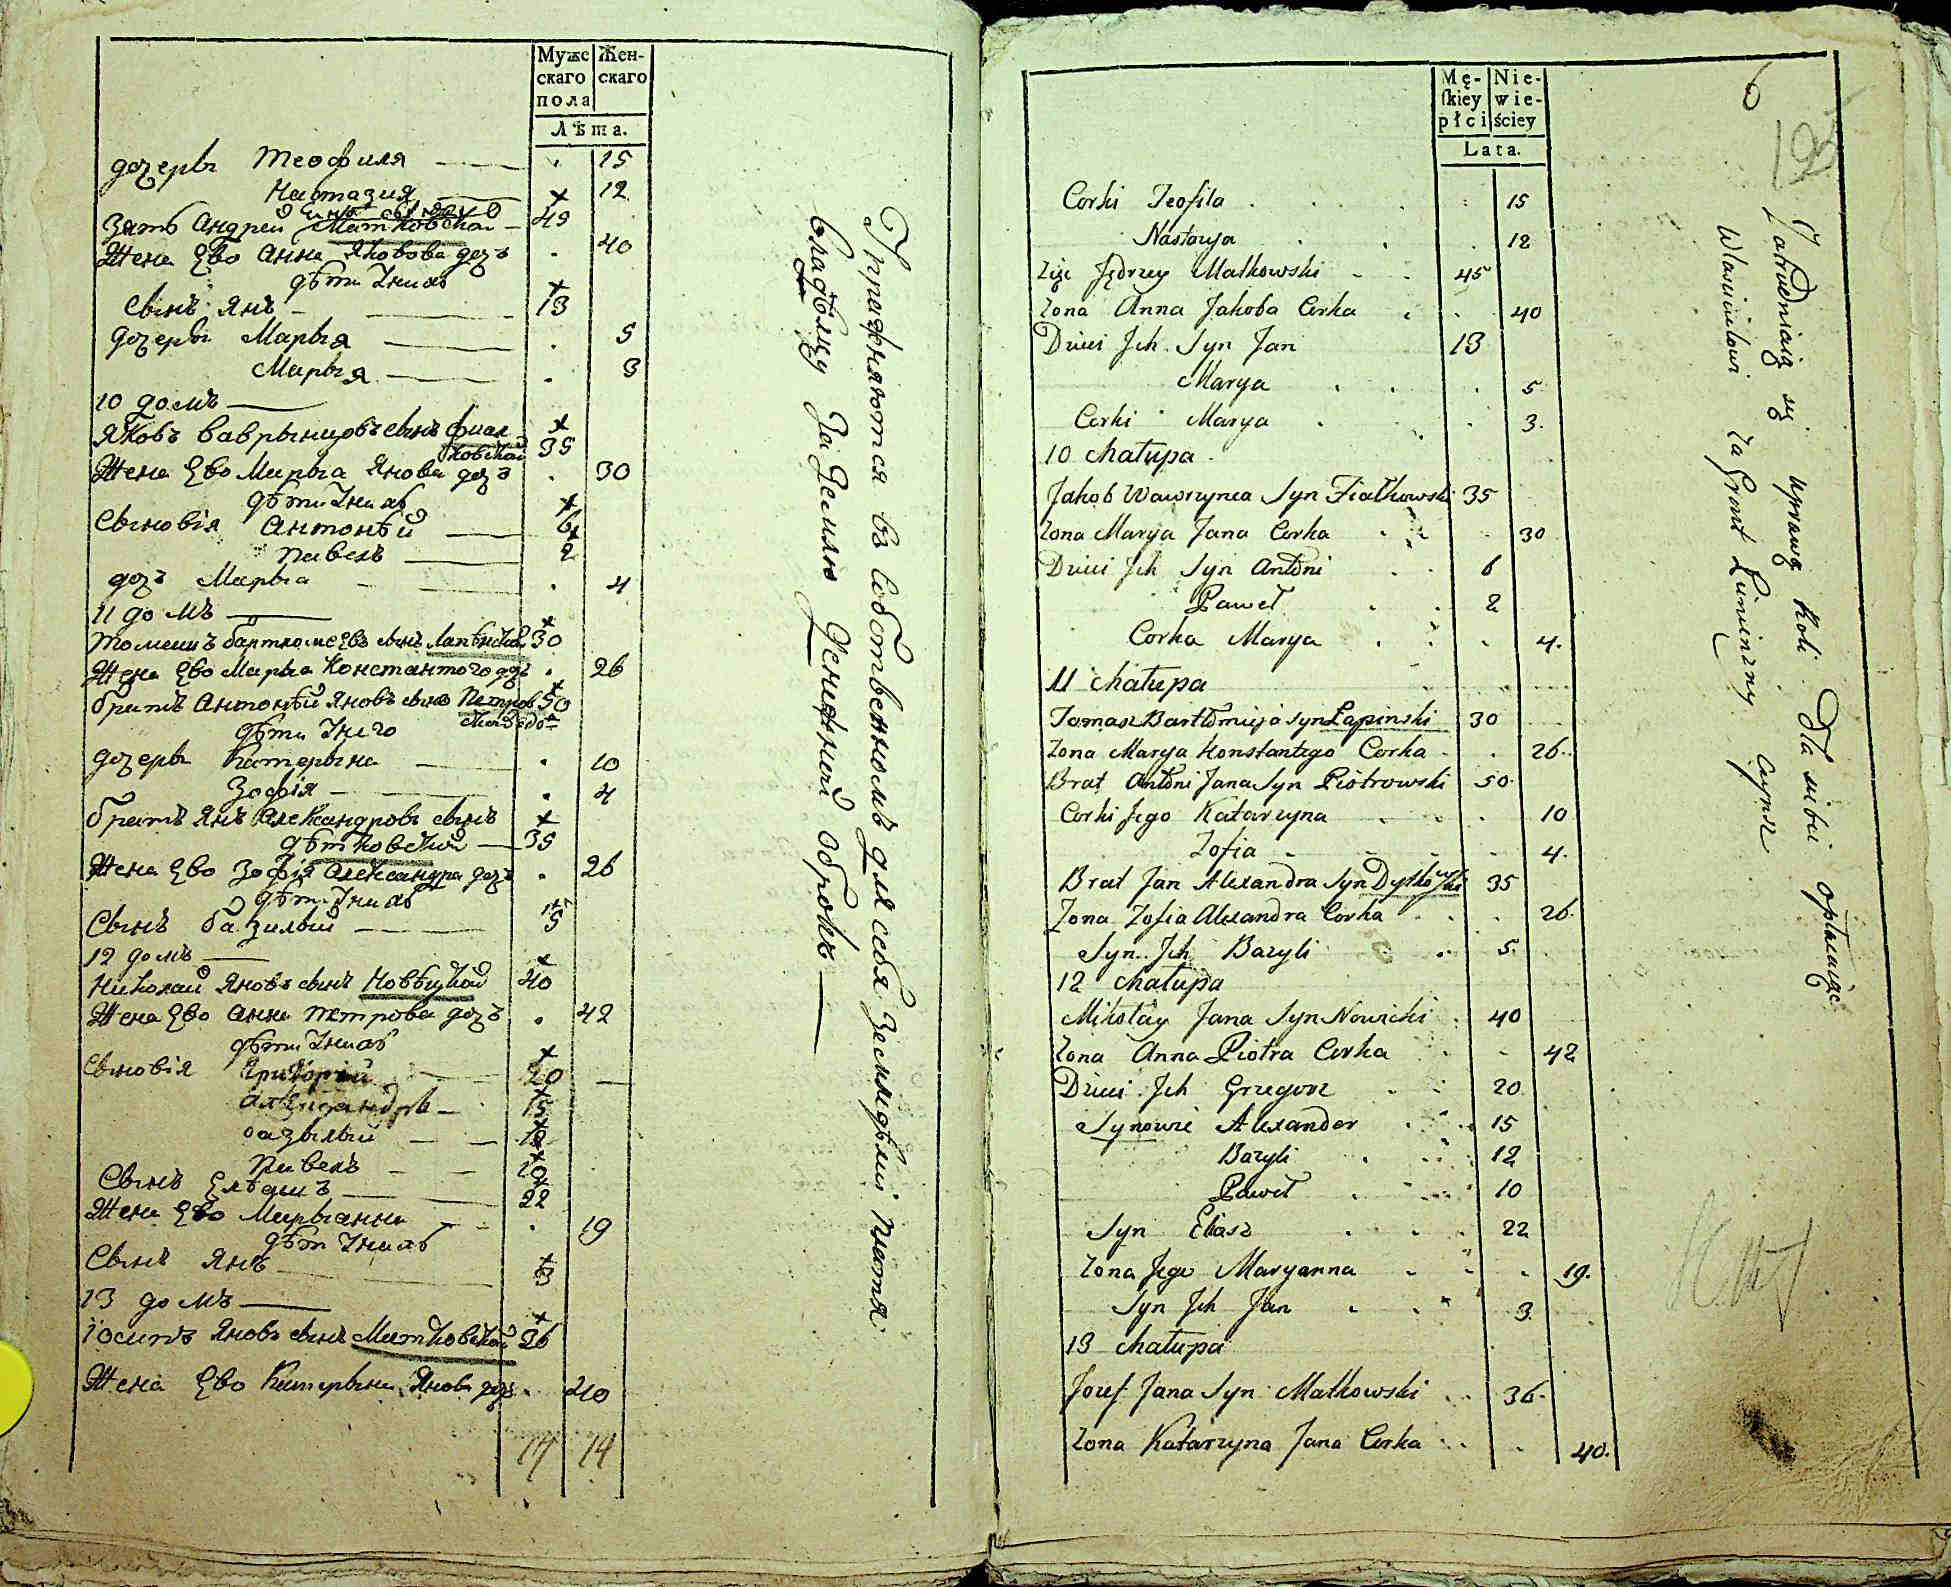 Муже Жен-
скаго скаго
пола
Лѣта.
дочеры Теофиля 15
Настазия 12
Зять Андрей Матковскай 45
Жена Ево Анна Якобова доч 40
дѣти Iнихъ
Сынъ Янъ 13
дочеры Марыя 5
Марыя 3
10 домъ
Якобъ Ваврынцовъ сынъ Фиал
ковскай 35
Жена Ево Марыа Янова доч 30
дѣти Iнихъ
Сыновiя Антонѣй 6
Павелъ 2
доч Марыа 4
11 домъ
Томашъ Бартломеевъ сынъ Лапѣнскай 30
Жена Ево Марыа Константого доч 26
братъ Антонѣй Яновъ сынъ Петров 50
ской
дѣти Iнего
дочеры Катерына 10
Зофiя 4
братъ Янъ Александровъ сынъ
дѣтковскай 35
Жена Ево Зофiя Александра доч 26
дѣти Iнихъ
Сынъ базилый 5
12 домъ
Николай Яновъ сынъ Новѣцкай 40
Жена Ево Анна Петрова доч 42
дѣти Iнихъ
Сыновiя Григорiй 20
Александръ 15
базылый 12
Павелъ 10
Сынъ Елѣашъ 22
Жена Ево Марыанна 19
дѣт Iнихъ
Сынъ Янъ 3
13 домъ
Iосипъ Яновъ сынъ Матковскай 36
Жена Ево Катерына Янова доч 40
17 14
Упражняются въ собственномъ для себя Земледѣлiи платя
владѣлцу За Землю Денежной оброкъ
Mę- Nie-
ſkiey wie-
płci ściey
Lata.
6
Corki Teofila 15
Nastazya 12
Zięć Jędrzey Matkowski 45
Zona Anna Jakoba Corka 40
Dzieci Ich Syn Jan 13
Marya 5
Corki Marya 3.
10 chałupa
Jakob Wawrzynca Syn Fiałkowski 35
Zona Marya Jana Corka 30
Dzieci Ich Syn Antoni 6
Paweł 2
Corka Marya 4.
11 chałupa
Tomasz Bartłomieja Syn Łapinski 30
Zona Marya Konstantego Corka 26.
Brat Antoni Jana Syn Piotrowski 50.
Corki Jego Katarzyna 10
Zofia 4.
Brat Jan Alexandra Syn Dytkowski 35
Zona Zofia Alexandra Corka 26.
Syn Ich Bazyli 5.
12 chałupa
Mikołay Jana Syn Nowicki 40
Zona Anna Piotra Corka 42
Dzieci Ich Grzegorz 20
Synowie Alexander 15
Bazyli 12
Paweł 10
Syn Eliasz 22
Zona Jego Maryanna 19.
Syn Ich Jan 3.
13 chałupa
Jozef Jana Syn Matkowski 36.
Zona Katarzyna Jana Corka 40.
Zatrudniaią się uprawą Roli Dla siebie opłacaiąc
Właścicielowi Za Grunt Czynsz